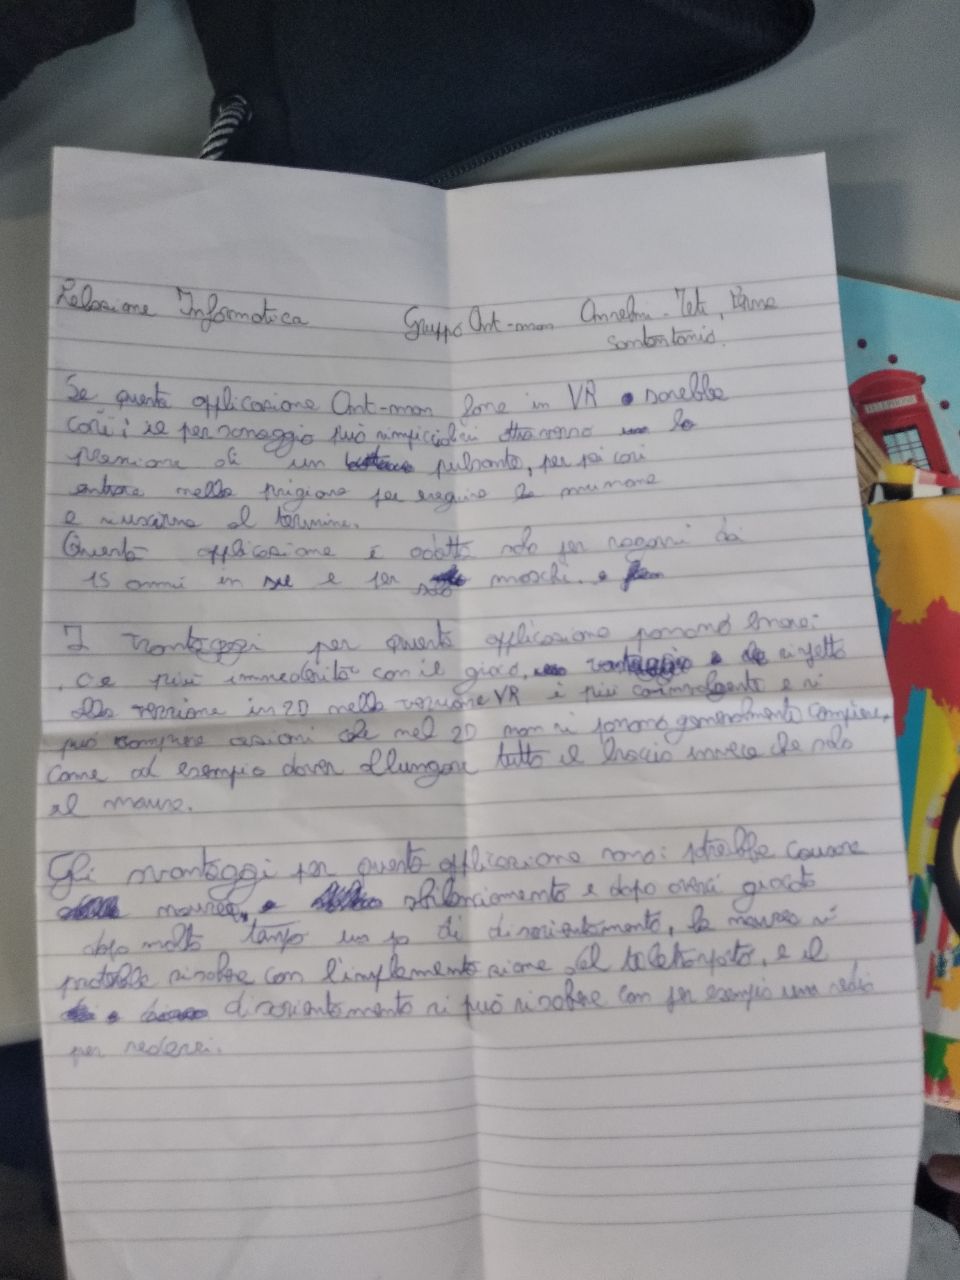 Relazione Informatica Gruppo Ant-man Anselmi - Teti,
Santantonio.
Se questa applicazione Ant-man fosse in VR sarebbe
così: il personaggio può rimpicciolirsi attraverso la
pressione di un pulsante, per poi così
entrare nella prigione per eseguire la missione
e riuscirne al termine.
Questa applicazione è adatta solo per ragazzi da
15 anni in su e per maschi.
I vantaggi per questa applicazione possono essere:
ce più immedesità con il gioco, rispetto
alla versione in 2D nella versione VR è più coinvolgente e si
può compiere azioni che nel 2D non si possono generalmente compiere,
come ad esempio dover allungare tutto il braccio invece che solo
il mouse.
Gli svantaggi per questa applicazione sono: potrebbe causare
nausea, sbilanciamento e dopo averci giocato
dopo molto tempo un po di disorientamento, la nausea si
potrebbe risolvere con l'implementazione del teletrasporto, e il
disorientamento si può risolvere con per esempio una sedia
per sedersi.
TELEPHONE